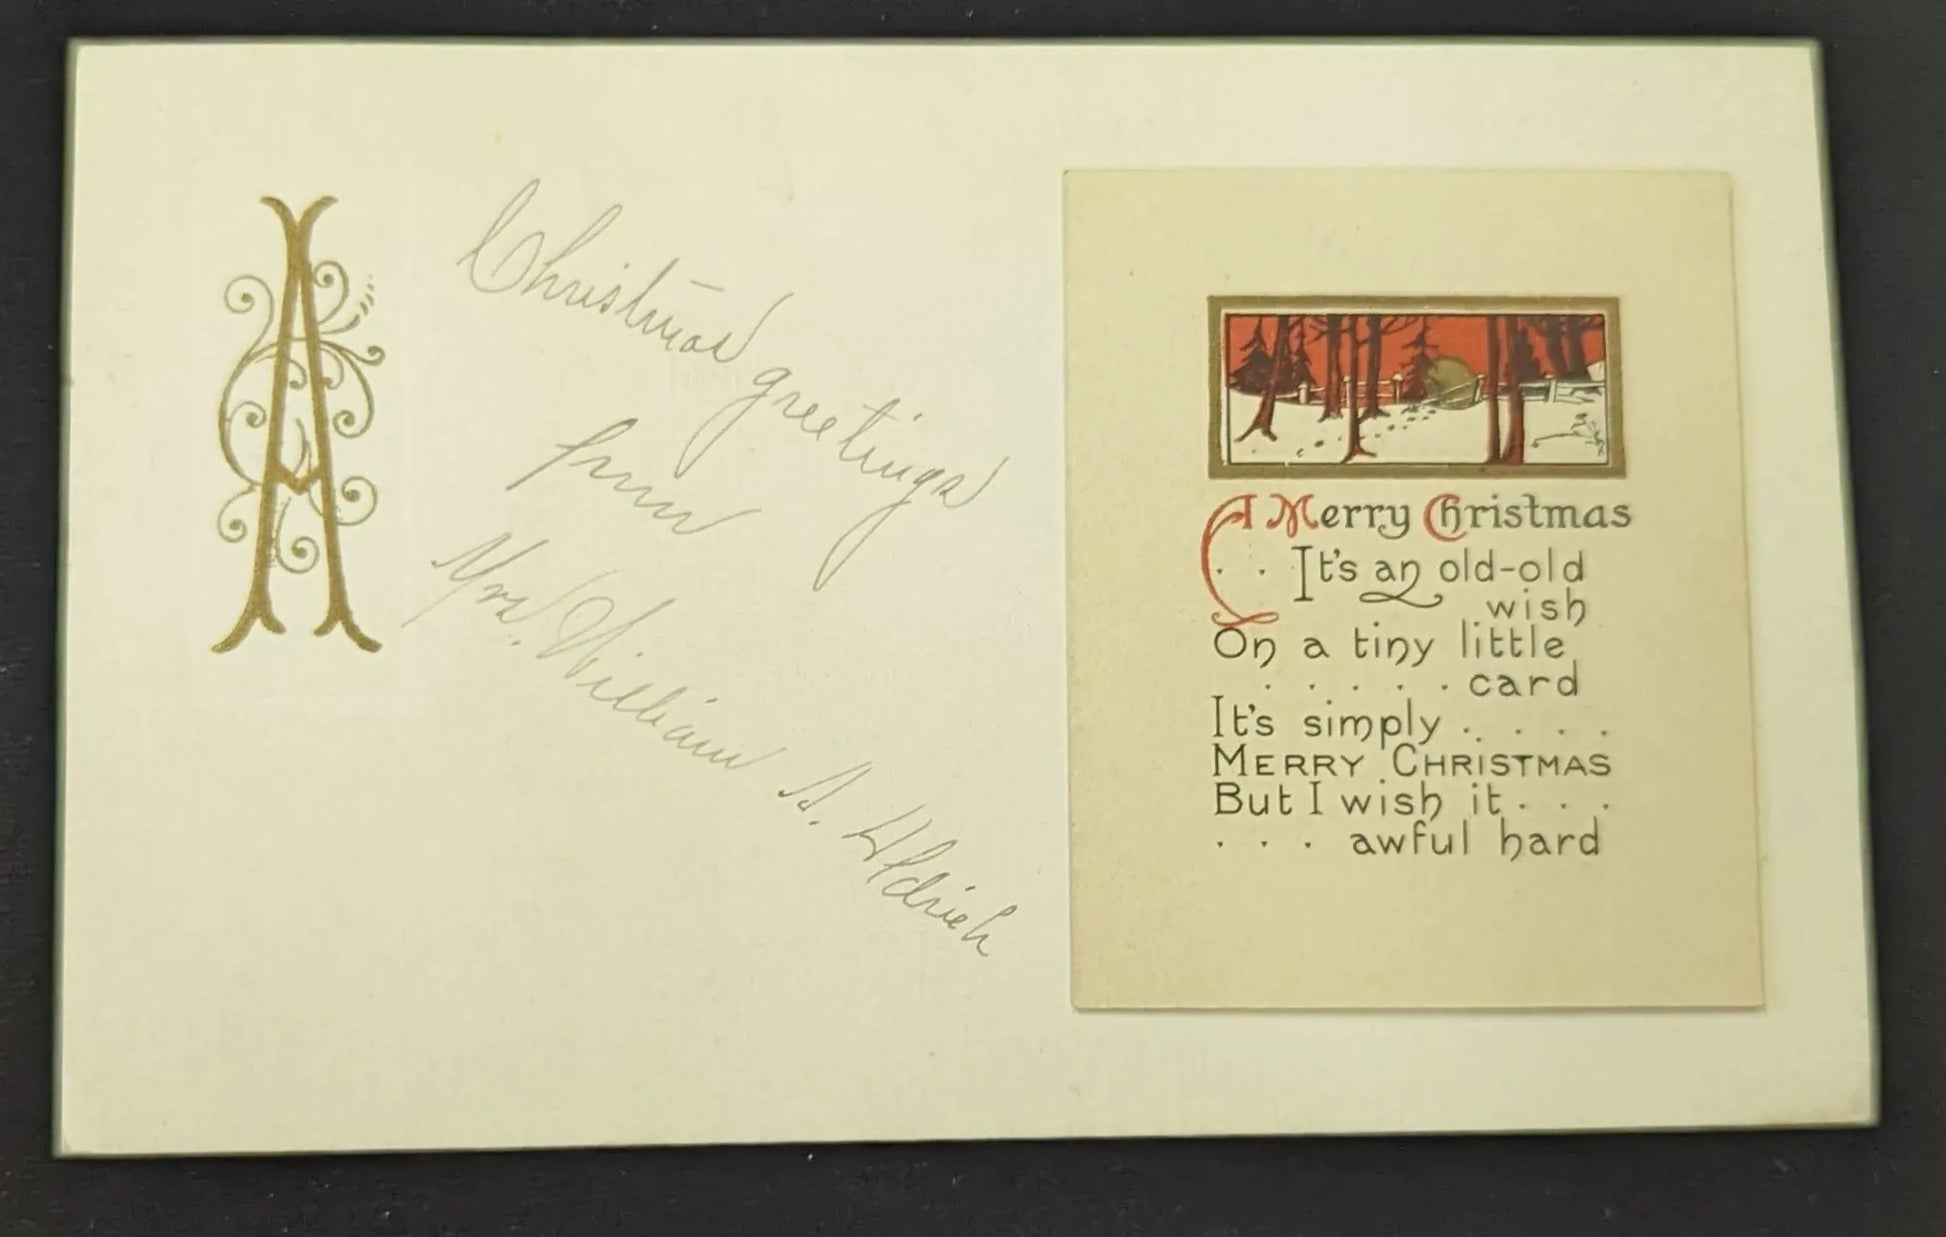 A
Christmas greetings
from
Mrs. William S. Aldrich
A Merry Christmas
. . It's an old-old
wish
On a tiny little
. . . . . card
It's simply . . . . .
MERRY CHRISTMAS
But I wish it . . .
. . . awful hard